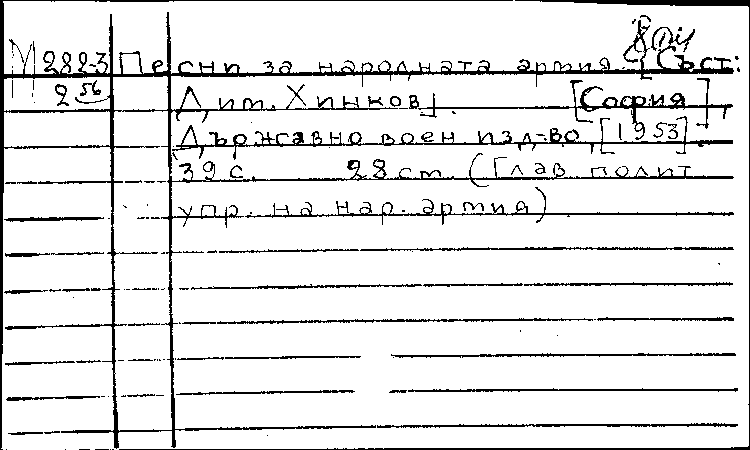 М 282-3 Песни за народната армия. [Съст:
2 56 Дим. Хинков]. [София],
Държавно воен изд-во, [1953].
39 с. 28 см. (Глав. полит
упр. на нар. армия)